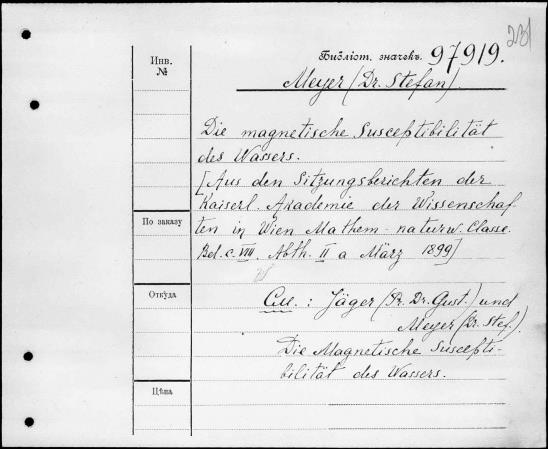 231
Инв.
№
Библіот. значекъ 97919.
Meyer (Dr. Stefan).
Die magnetische Susceptibilität
des Wassers.
[Aus den Sitzungsberichten der
Kaiserl. Akademie der Wissenschaf-
ten in Wien Mathem-naturw. Classe.
Bd. C. VIII. Abth. II a März 1899]
По заказу
Откуда
См.: Jäger (Pr. Dr. Gust.) und
Meyer (Dr. Stef.)
Die Magnetische Suscepti-
bilität des Wassers.
Цѣна